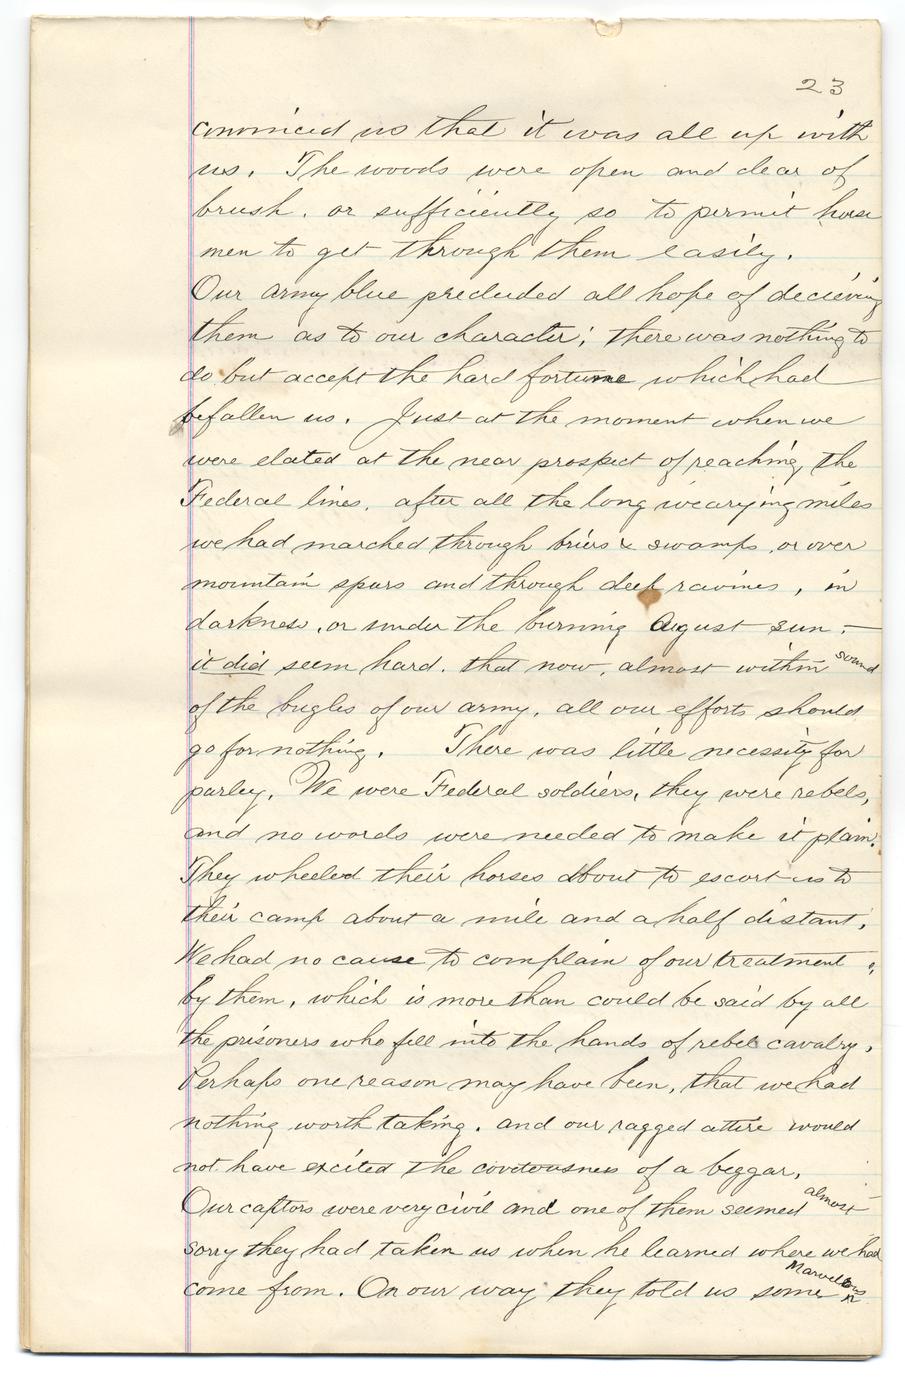 23
convinced us that it was all up with
us. The woods were open and clear of
brush, or sufficiently so to permit horse
men to get through them easily.
Our army blue precluded all hope of decieving
them as to our character; there was nothing to
do but accept the hard fortune which had
befallen us. Just at the moment when we
were elated at the near prospect of reaching the
Federal lines, after all the long wearying miles
we had marched through briers & swamps, or over
mountain spurs and through deep ravines, in
darkness, or under the burning August sun, —
it did seem hard, that now, almost within sound
of the bugles of our army, all our efforts should
go for nothing. There was little necessity for
parley. We were Federal soldiers, they were rebels,
and no words were needed to make it plain.
They wheeled their horses about to escort us to
their camp about a mile and a half distant.
We had no cause to complain of our treatment
by them, which is more than could be said by all
the prisoners who fell into the hands of rebel cavalry.
Perhaps one reason may have been, that we had
nothing worth taking, and our ragged attire would
not have excited the covetousness of a beggar.
Our captors were very civil and one of them seemed almost
sorry they had taken us when he learned where we had
come from. On our way they told us some Marvellous